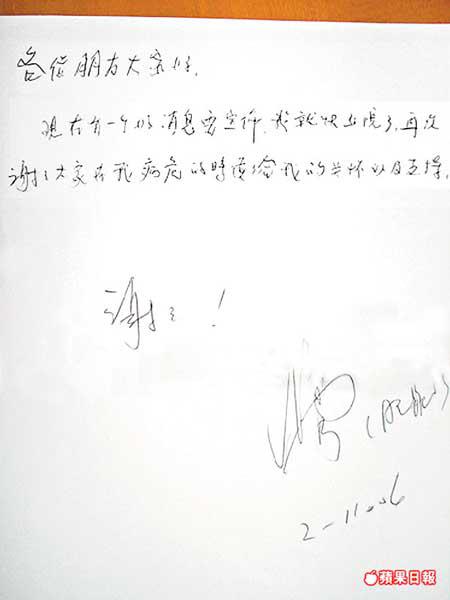 各位朋友大家好,
現在有一个好消息要宣佈,我就快出院了,再次
謝謝大家在我病危的時候給我的关怀以及支撑,
謝謝!
2-11.06
蘋果日報